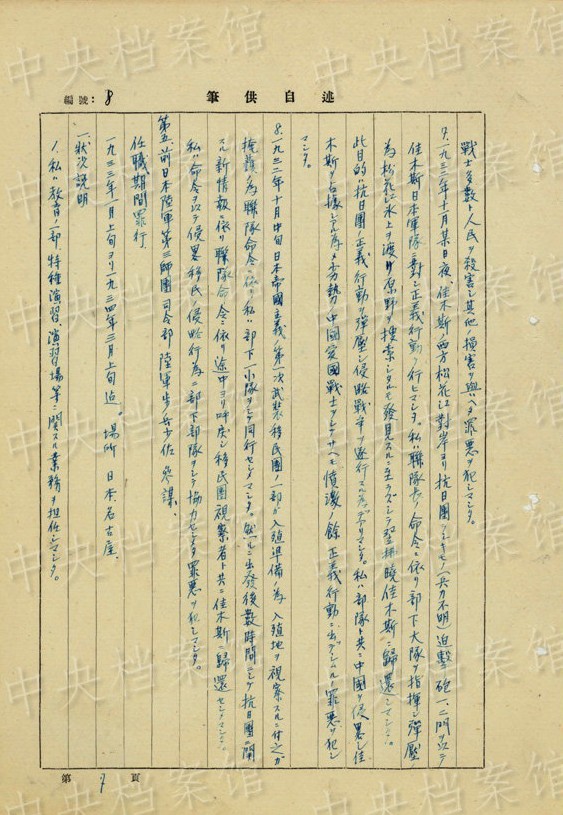 編號：8
筆供自述
戰士多数ト人民ヲ殺害シ其他ノ損害ヲ與ヘタ罪悪ヲ犯シマシタ。
7.一九三二年十月某日夜、佳木斯ノ西方松花江対岸ヨリ抗日團ラシキモノ（兵力不明）迫撃砲一、二門ヲ以テ
佳木斯日本軍隊ニ對シ正義行動ヲ行ヒマシタ。私ハ聯隊長ノ命令ニ依リ部下大隊ヲ指揮シ彈壓ノ
為松花江氷上ヲ渡リ原野ヲ捜索シタルモ發見スルニ至ラズシテ翌拂曉佳木斯ニ歸還シマシタ。
此目的ハ抗日團ノ正義行動ヲ彈壓シ侵略戰争ヲ遂行スル為デアリマシタ。私ハ部隊ト共ニ中國ヲ侵畧シ佳
木斯ヲ占據シタル為メ劣勢ノ中國愛國戰士ヲシテサヘモ憤激ノ餘正義行動ニ出デシムルノ罪悪ヲ犯シ
マシタ。
8.一九三二年十月中旬日本帝國主義ノ第一次武裝移民團ノ一部ガ入殖準備ノ為入殖地ヲ視察スルニ付之ガ
掩護ノ為聯隊命令ニ依リ私ハ部下一小隊ヲシテ同行セシメマシタ。然ルニ出發後数時間ニシテ抗日團ニ関
スル新情報ニ依リ聯隊命令ニ依リ途中ヨリ呼戻シ移民團視察者ト共ニ佳木斯ニ歸還セシメマシタ。
私ハ命令ヲ以テ侵畧移民ノ侵略行為ニ部下部隊ヲシテ協力セシメタ罪悪ヲ犯シマシタ。
第五、前日本陸軍第三師團司令部陸軍歩兵少佐參謀、
任職期間罪行
一九三三年一月上旬ヨリ一九三四年三月上旬迄。場所 日本名古屋、
一、狀況說明
1.私ハ教育ノ一部、特種演習、演習場等ニ関スル業務ヲ担任シマシタ。
第 7 頁
中央档案馆